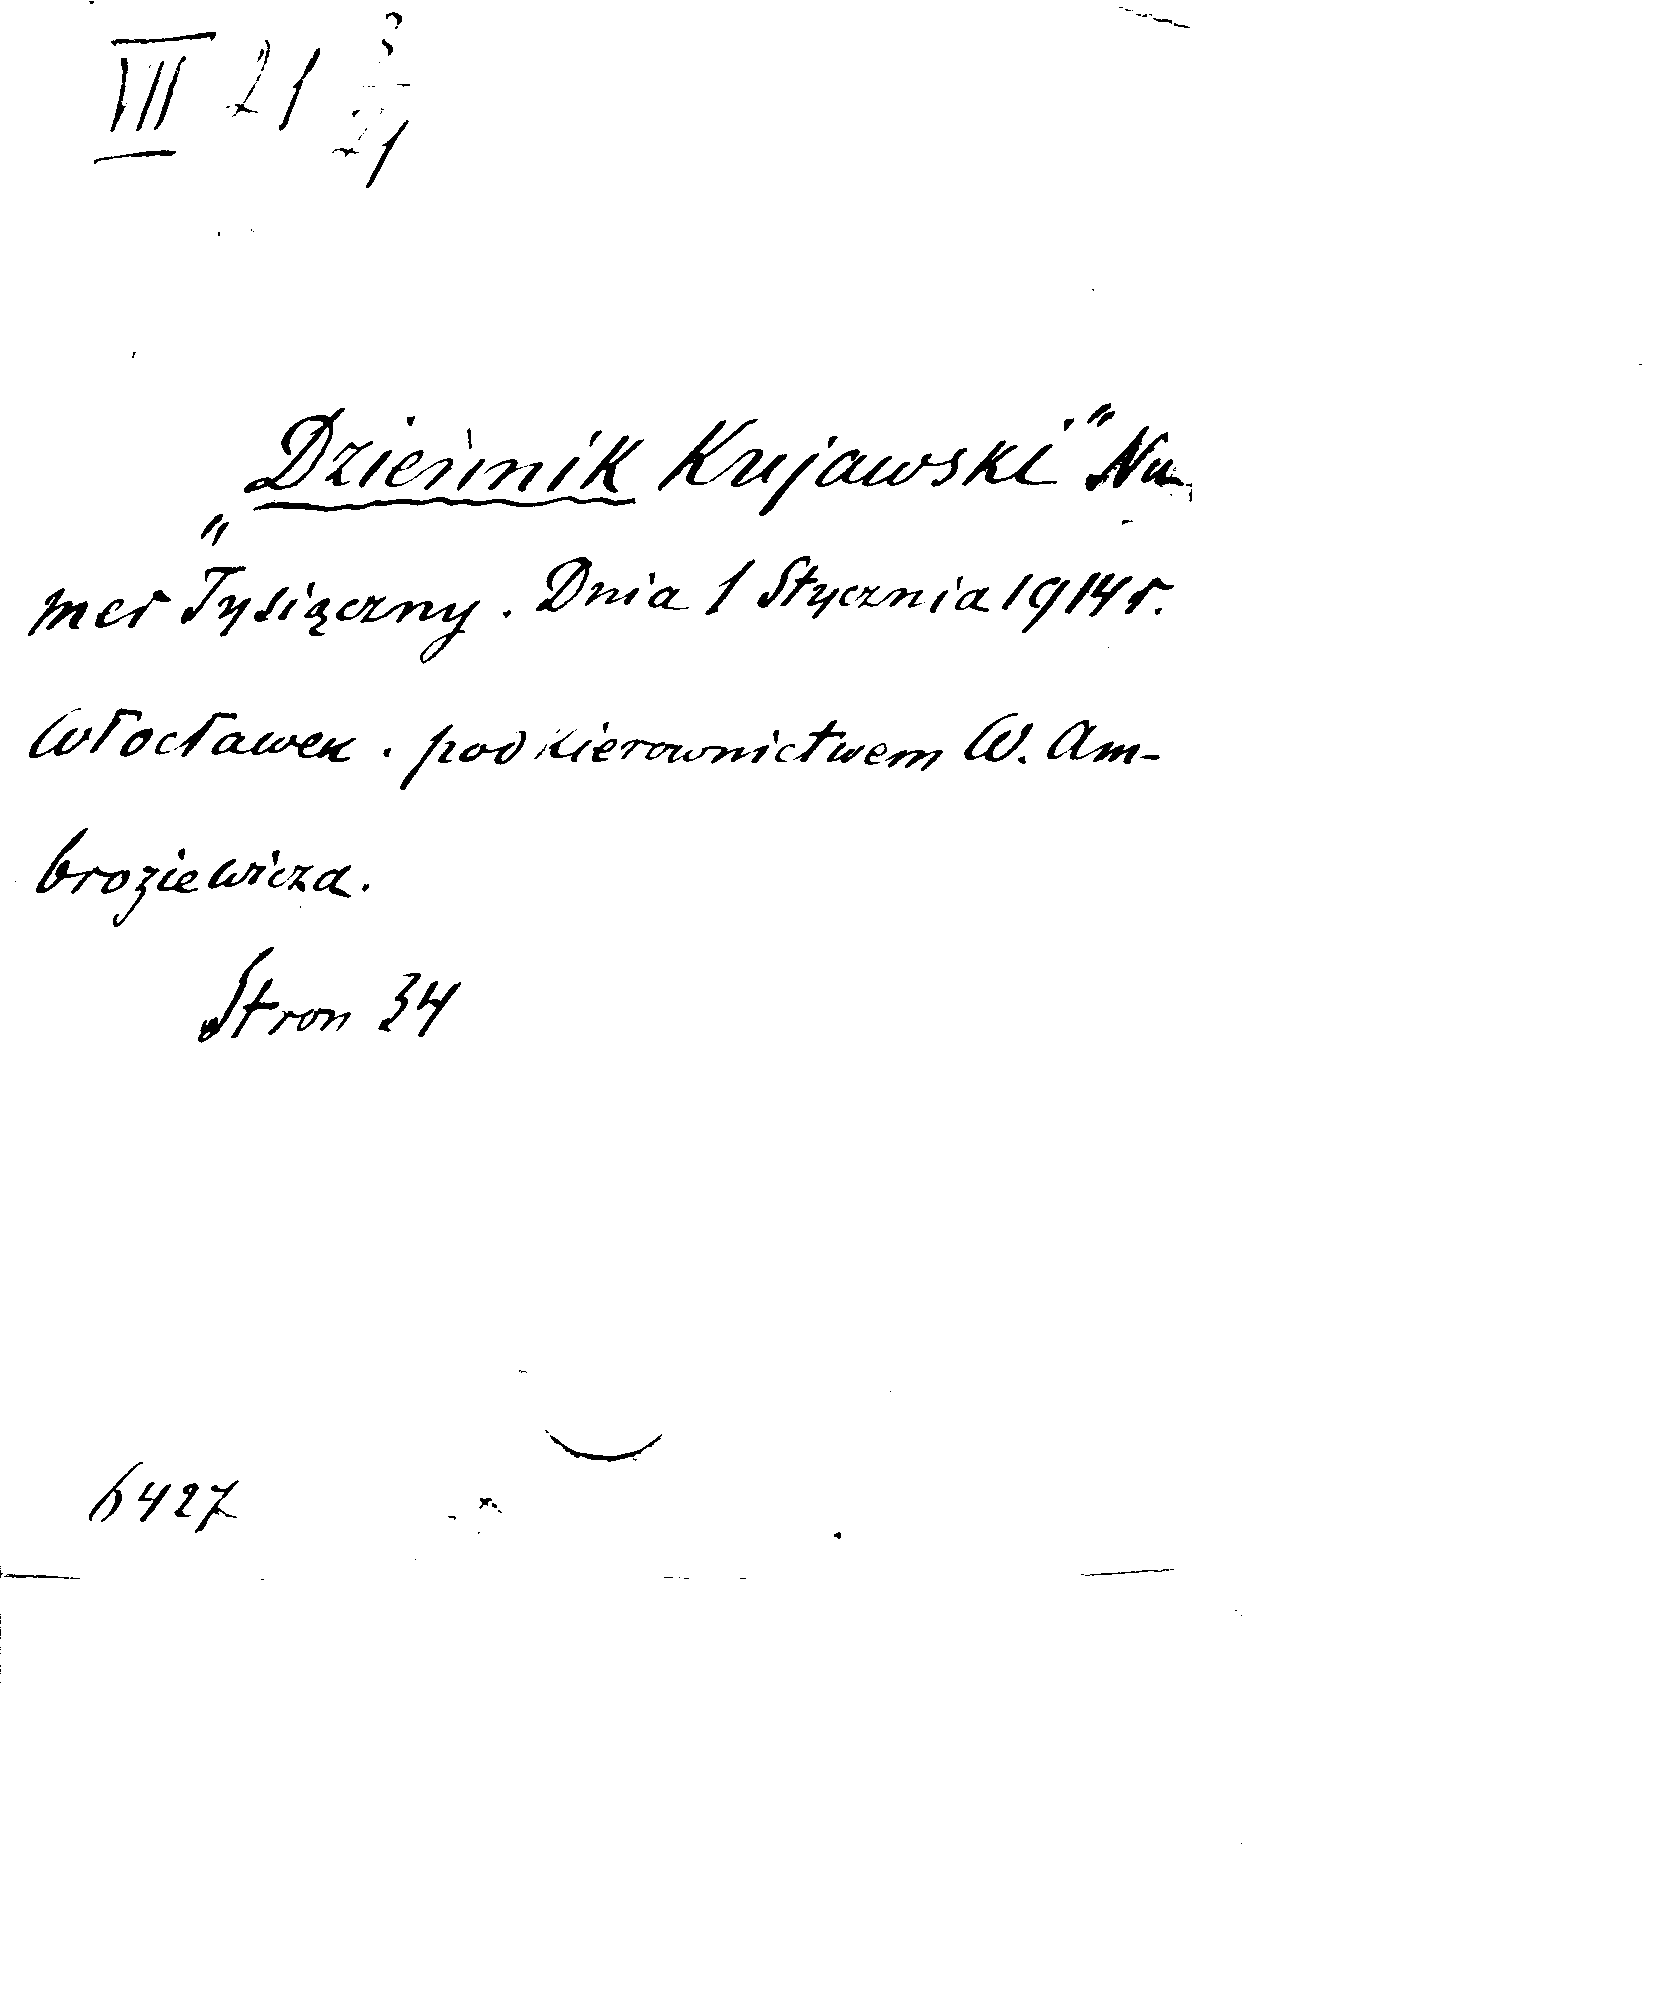 VII 21 3/21
„Dziennik Kujawski” Nu-
mer Tysiączny. Dnia 1 Stycznia 1914 r.
Włocławek. pod kierownictwem W. Am-
broziewicza.
Stron 34
6427